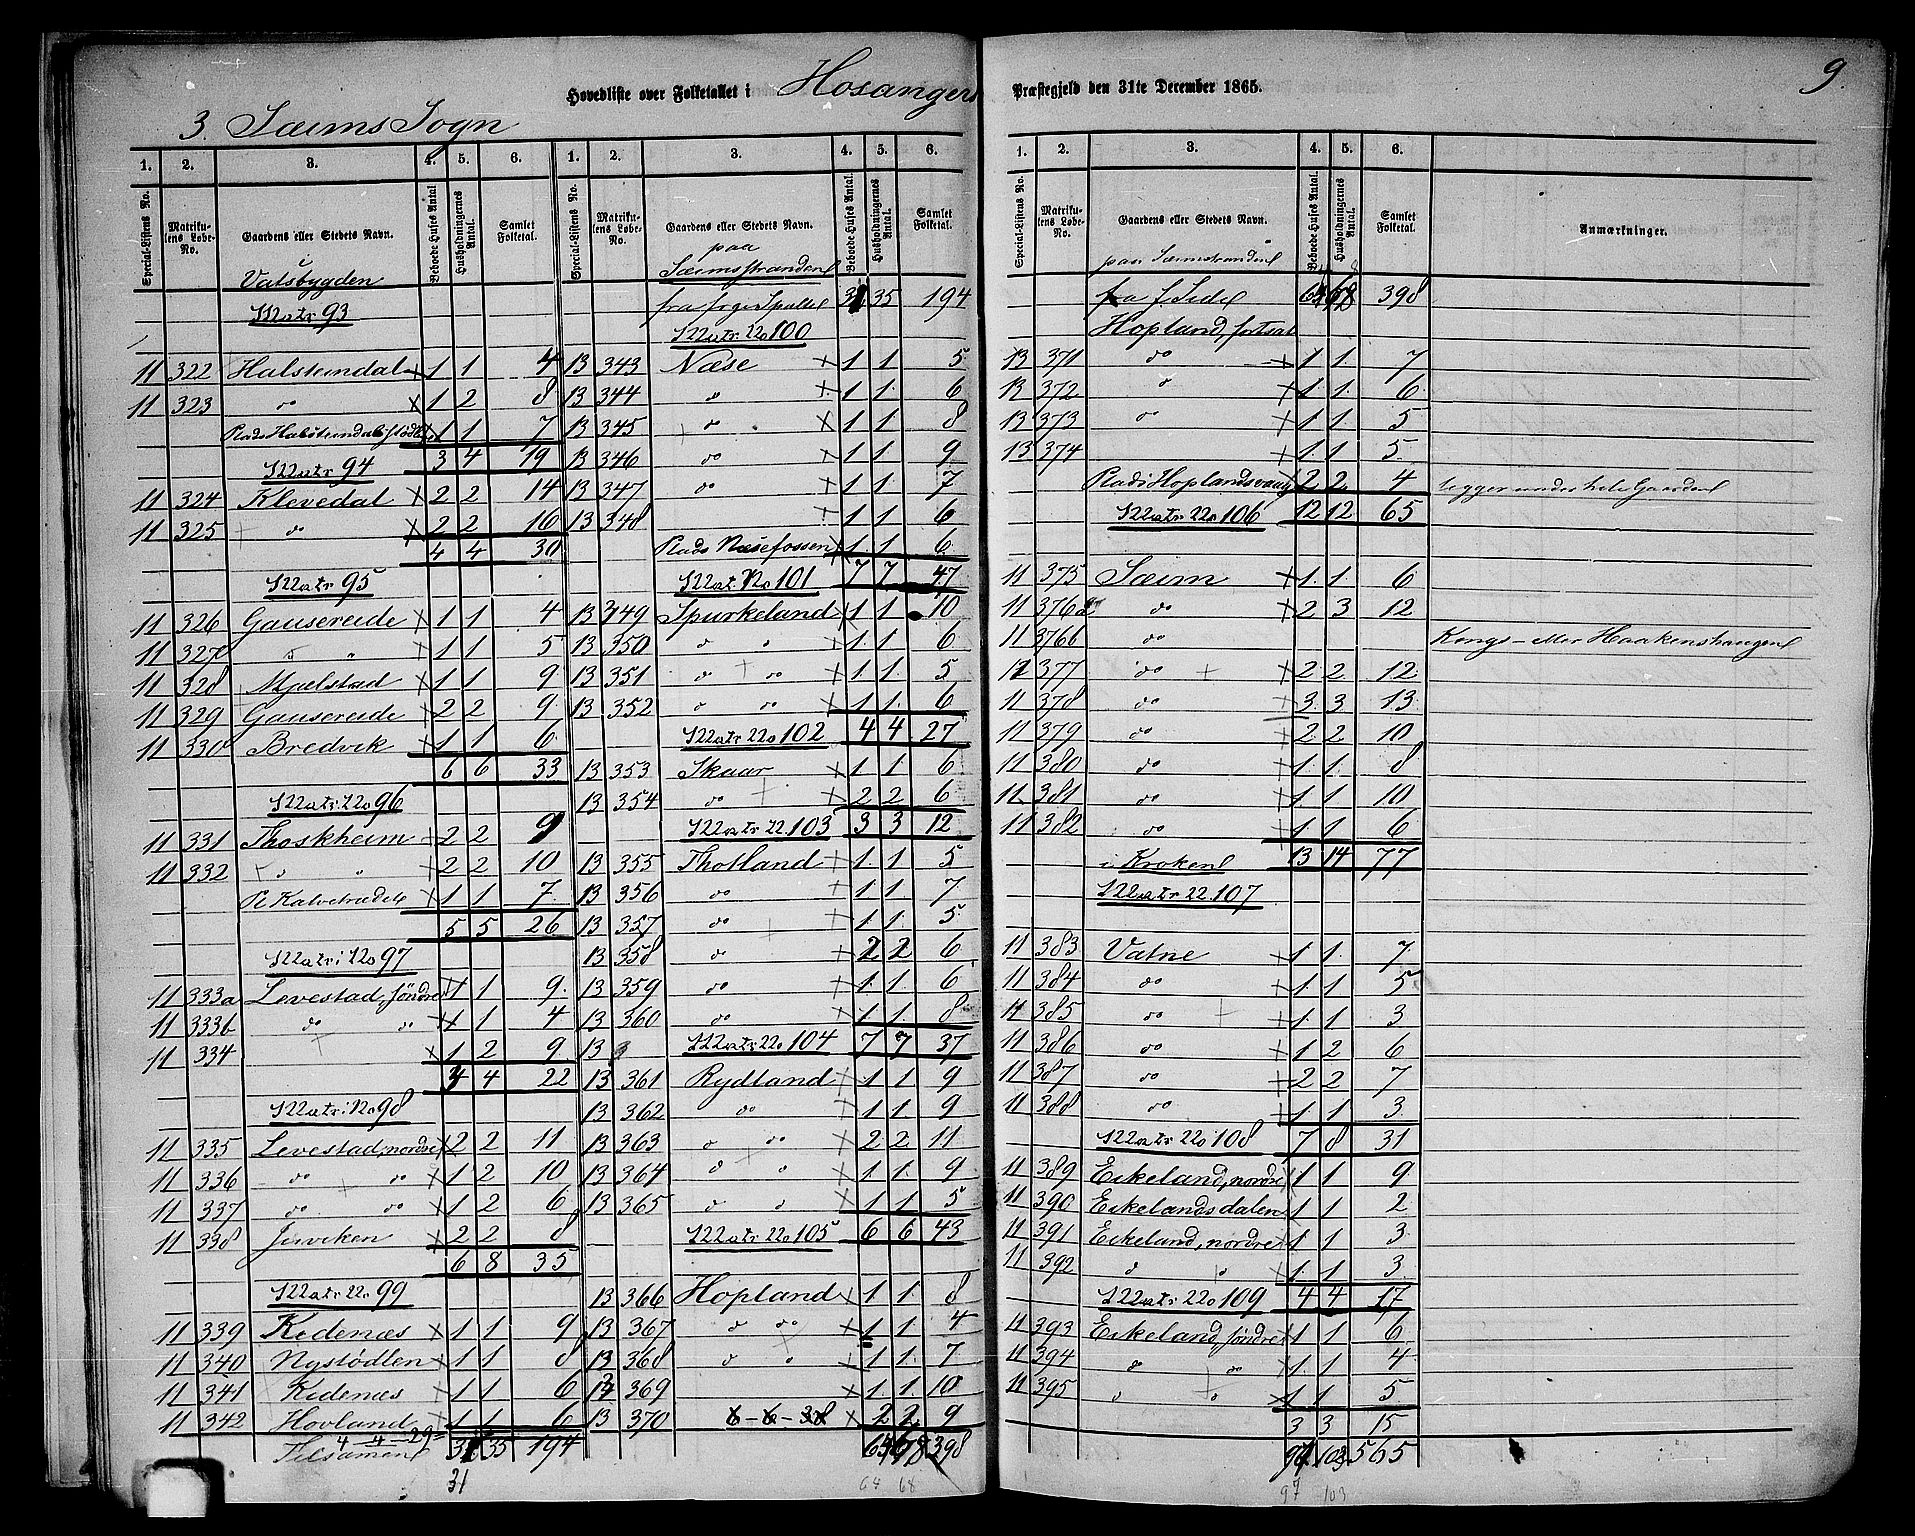 9.
Hovedliste over Folketallet i Hosangers Præstegjeld den 31te December 1865.
3. Sæims Sogn
1. 2. 3. 4. 5. 6. 1. 2. 3. 4. 5. 6.
Special-Listens No. Matrikulens Løbe-No. Gaardens eller Stedets Navn. Beboede Huses Antal. Husholdningernes Antal. Samlet Folketal. Special-Listens No. Matrikulens Løbe-No. Gaardens eller Stedets Navn. Beboede Huses Antal. Husholdningernes Antal. Samlet Folketal.
i
Vatsbygden
Matr 93
11 322 Halsteindal x 1 1 4
11 323 do x 1 2 8
Pads Halsteindalsstødlen x 1 1 7
Matr 94 3 4 19
11 324 Klevedal x 2 2 14
11 325 do x 2 2 16
4 4 30
Matr 95
11 326 Gausereide x 1 1 4
11 327 " " 1 1 5
11 328 Mjelstad x 1 1 9
11 329 Gausereide x 2 2 9
11 330 Bredvik x 1 1 6
6 6 33
Matr: No 96
11 331 Thoskheim 2 2 9
11 332 " " 2 2 10
Pl Kalvetrædet x 1 1 7
5 5 26
Matr: No 97
11 333a Levestad, søndre x 1 1 9.
11 333b do do x 1 4
11 334 x 1 2 9
4 4 22
Matr: No 98
11 335 Levestad, nordre x 2 2 11
11 336 do do x 1 2 10
11 337 do do x 1 2 6
11 338 Jirviken x 2 2 8
6 8 35
Matr No 99
11 339 Kidenæs x 1 1 9
11 340 Nystødlen x 1 1 8
11 341 Kidenæs x 1 1 6
11 342 Hovland x 1 1 6
4 4 29
Tilsammen 31 35 194
31
paa
Sæimsstranden
fra forige Spalte 31 35 194
Matr: No 100
13 343 Næse x 1 1 5
13 344 " x 1 1 6
13 345 do x 1 1 8
13 346 do 1 1 9
13 347 do x 1 1 7
13 348 1 1 6
Pads Næsefossen x 1 1 6
Mat: No 101 7 7 47
13 349 Spurkeland x 1 1 10
13 350 " " 1 1 6
13 351 " do x 1 1. 5
13 352 " do x 1 1. 6
Matr No 102 4 4 27
13 353 Skaar x 1 1 6
13 354 do x 2 2 6
Matr No 103 3 3 12
13 355 Thotland x 1. 1 5
13 356 do 1 1. 7
13 357 do 1 1 5
13 358 do 2 2 6
13 359 do x 1 1 6
13 360 do 1. 1 8
13 Matr: No 104 7 7 37
13 361 Rydland x 1 1 9
13 362 do 1 1. 9
13 363 " do 2 2 11
13 364 " " 1 1. 9
13 365 " " 1 1 5
Matr No 105 6 6 43
13 366 Hopland x 1 1. 8
13 367 " do x 1 1. 4
13 368 " " 1 1. 7
13 369 x 1 1. 10
13 370 6 - 6 - 38 x 2 2. 9
64 68 398
64 68
1. 2. 3. 4. 5. 6.
Special-Listens No. Matrikulens Løbe-No. Gaardens eller Stedets Navn. Beboede Huses Antal. Husholdningernes Antal. Samlet Folketal. Anmærkninger.
paa Sæimstranden
fra f Side 64 68 398
Hopland, fortsat
13 371 do x 1 1. 7
13 372 " x 1 1. 6
13 373 do x 1 1 5
13 374 1 1 5.
Pads Hoplandsvaag 2 2 4 ligger under hele Gaarden
Matr: No 106 12 12 65
11 375 Sæim x 1 1. 6
11 376a do x 2 3 12
11 376b do Kongs- eller Haakenshaugen
11 377 do x 2 2 12
11 378 do x 3 3 13
11 379 do 2 2 10
11 380 do x 1 1. 8
11 381 do x 1 1 10
11 382 do x 1 1 6
i Kroken 13 14 77
Matr No. 107
11 383 Vatne x 1 1. 7
11 384 do x 1 1 5
11 385 do x 1 1 3
11 386 do x 1 2 6
11 387 do x 2 2 7
11 388 do x 1 1 3
Matr No 108 7 8 31
11 389 Eikeland, nordre x 1 1 9
11 390 Eikelandsdalen x 1 1 2
11 391 Eikeland, nordre x 1 1 3
11 392 " " x 1 1 3
Matr No 109 4 4 17
11 393 Eikeland, søndre x 1 1 6
11 394 " do x 1 1. 4
11 395 " " x 1 1. 5
3 3 15
97 103 565
97 103